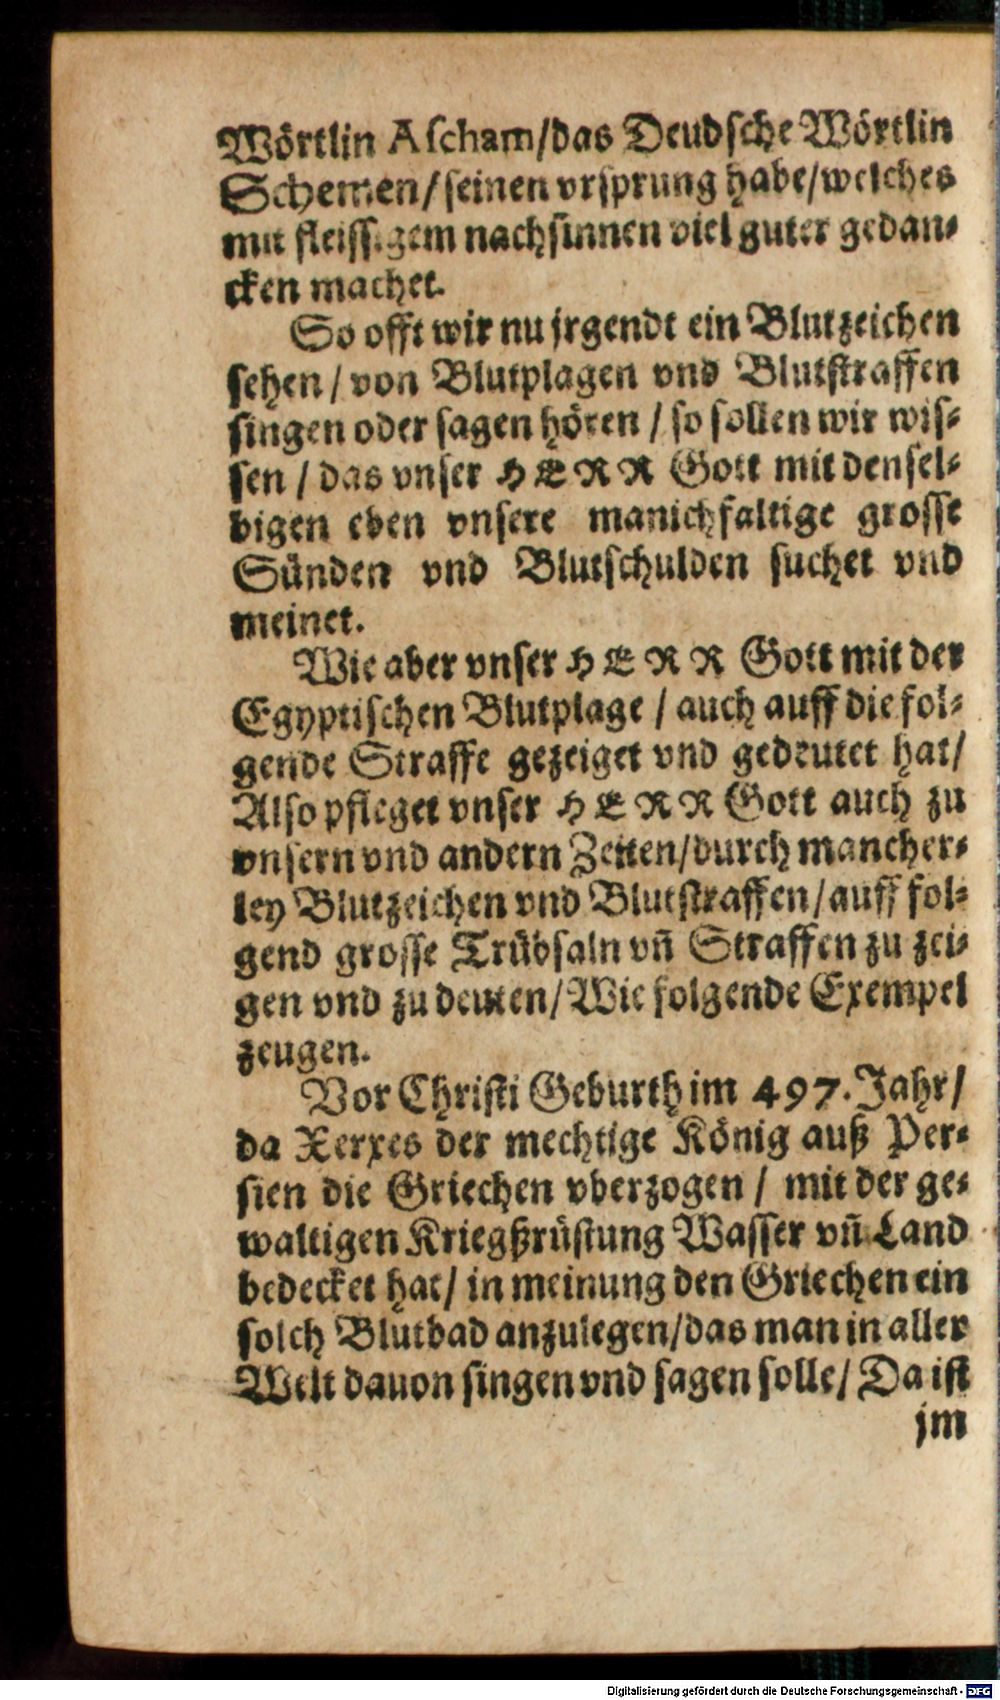 Wörtlin Ascham/das Deudsche Wörtlin
Schemen/seinen vrsprung habe/welches
mit fleissigem nachsinnen viel guter gedan-
cken machet.
So offt wir nu jrgendt ein Blutzeichen
sehen / von Blutplagen vnd Blutstraffen
singen oder sagen hören / so sollen wir wis-
sen / das vnser HERR Gott mit densel-
bigen eben vnsere manichfaltige grosse
Sünden vnd Blutschulden suchet vnd
meinet.
Wie aber vnser HERR Gott mit der
Egyptischen Blutplage / auch auff die fol-
gende Straffe gezeiget vnd gedeutet hat/
Also pfleget vnser HERR Gott auch zu
vnsern vnd andern Zeiten/durch mancher-
ley Blutzeichen vnd Blutstraffen/auff fol-
gend grosse Trübsaln vñ Straffen zu zei-
gen vnd zu deuten/Wie folgende Exempel
zeugen.
Vor Christi Geburth im 497. Jahr/
da Xerxes der mechtige König auß Per-
sien die Griechen vberzogen / mit der ge-
waltigen Kriegßrüstung Wasser vñ Land
bedecket hat/ in meinung den Griechen ein
solch Blutbad anzulegen/das man in aller
Welt dauon singen vnd sagen solle/ Da ist
jm
Digitalisierung gefördert durch die Deutsche Forschungsgemeinschaft - DFG